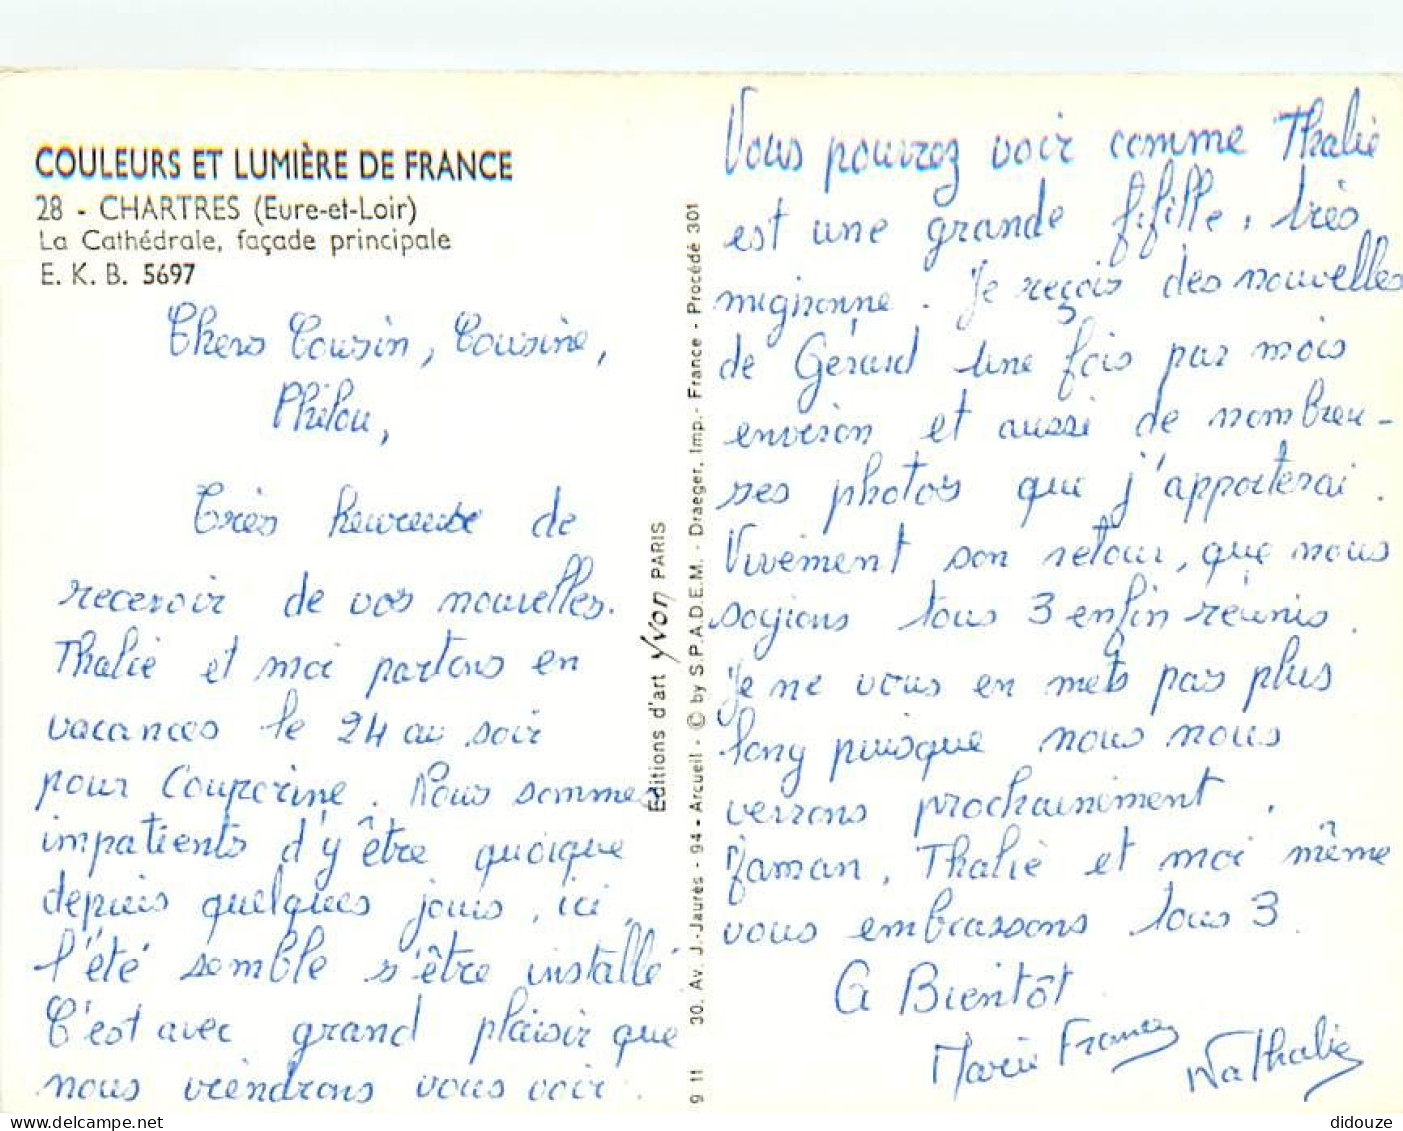 COULEURS ET LUMIÈRE DE FRANCE
28 - CHARTRES (Eure-et-Loir)
La Cathédrale, façade principale
E. K. B. 5697
Chers Cousin, Cousine,
Philou,
Très heureuse de
recevoir de vos nouvelles.
Thalie et moi partons en
vacances le 24 au soir
pour Couporine. Nous sommes
impatients d'y être quoique
depuis quelques jours, ici,
l'été semble s'être installé
C'est avec grand plaisir que
nous viendrons vous voir.
Editions d'art Yvon PARIS
30, Av. J.-Jaurès - 94 - Arcueil - © by S.P.A.D.E.M. - Draeger, Imp. - France - Procédé 301
9 11
Vous pourrez voir comme Thalie
est une grande fifille, très
mignonne. Je reçois des nouvelles
de Gérard une fois par mois
environ et aussi de nombreu-
ses photos que j'apporterai.
Vivement son retour, que nous
soyions tous 3 enfin réunis.
Je ne vous en mets pas plus
long puisque nous nous
verrons prochainement.
Maman, Thalie et moi même
vous embrassons tous 3.
A Bientôt
Marie France
Nathalie
didouze